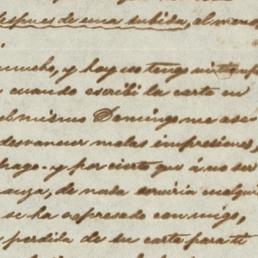 despues de una subida, al menos
mucho, y hoy no tengo
cuando escribi la carta en
el mismo Domingo me ase
desvanecer malas impresiones,
hago. y por cierto que á no ser
anza, de nada serviria cualqui
se ha apresado con migo,
perdida de su carta para ti